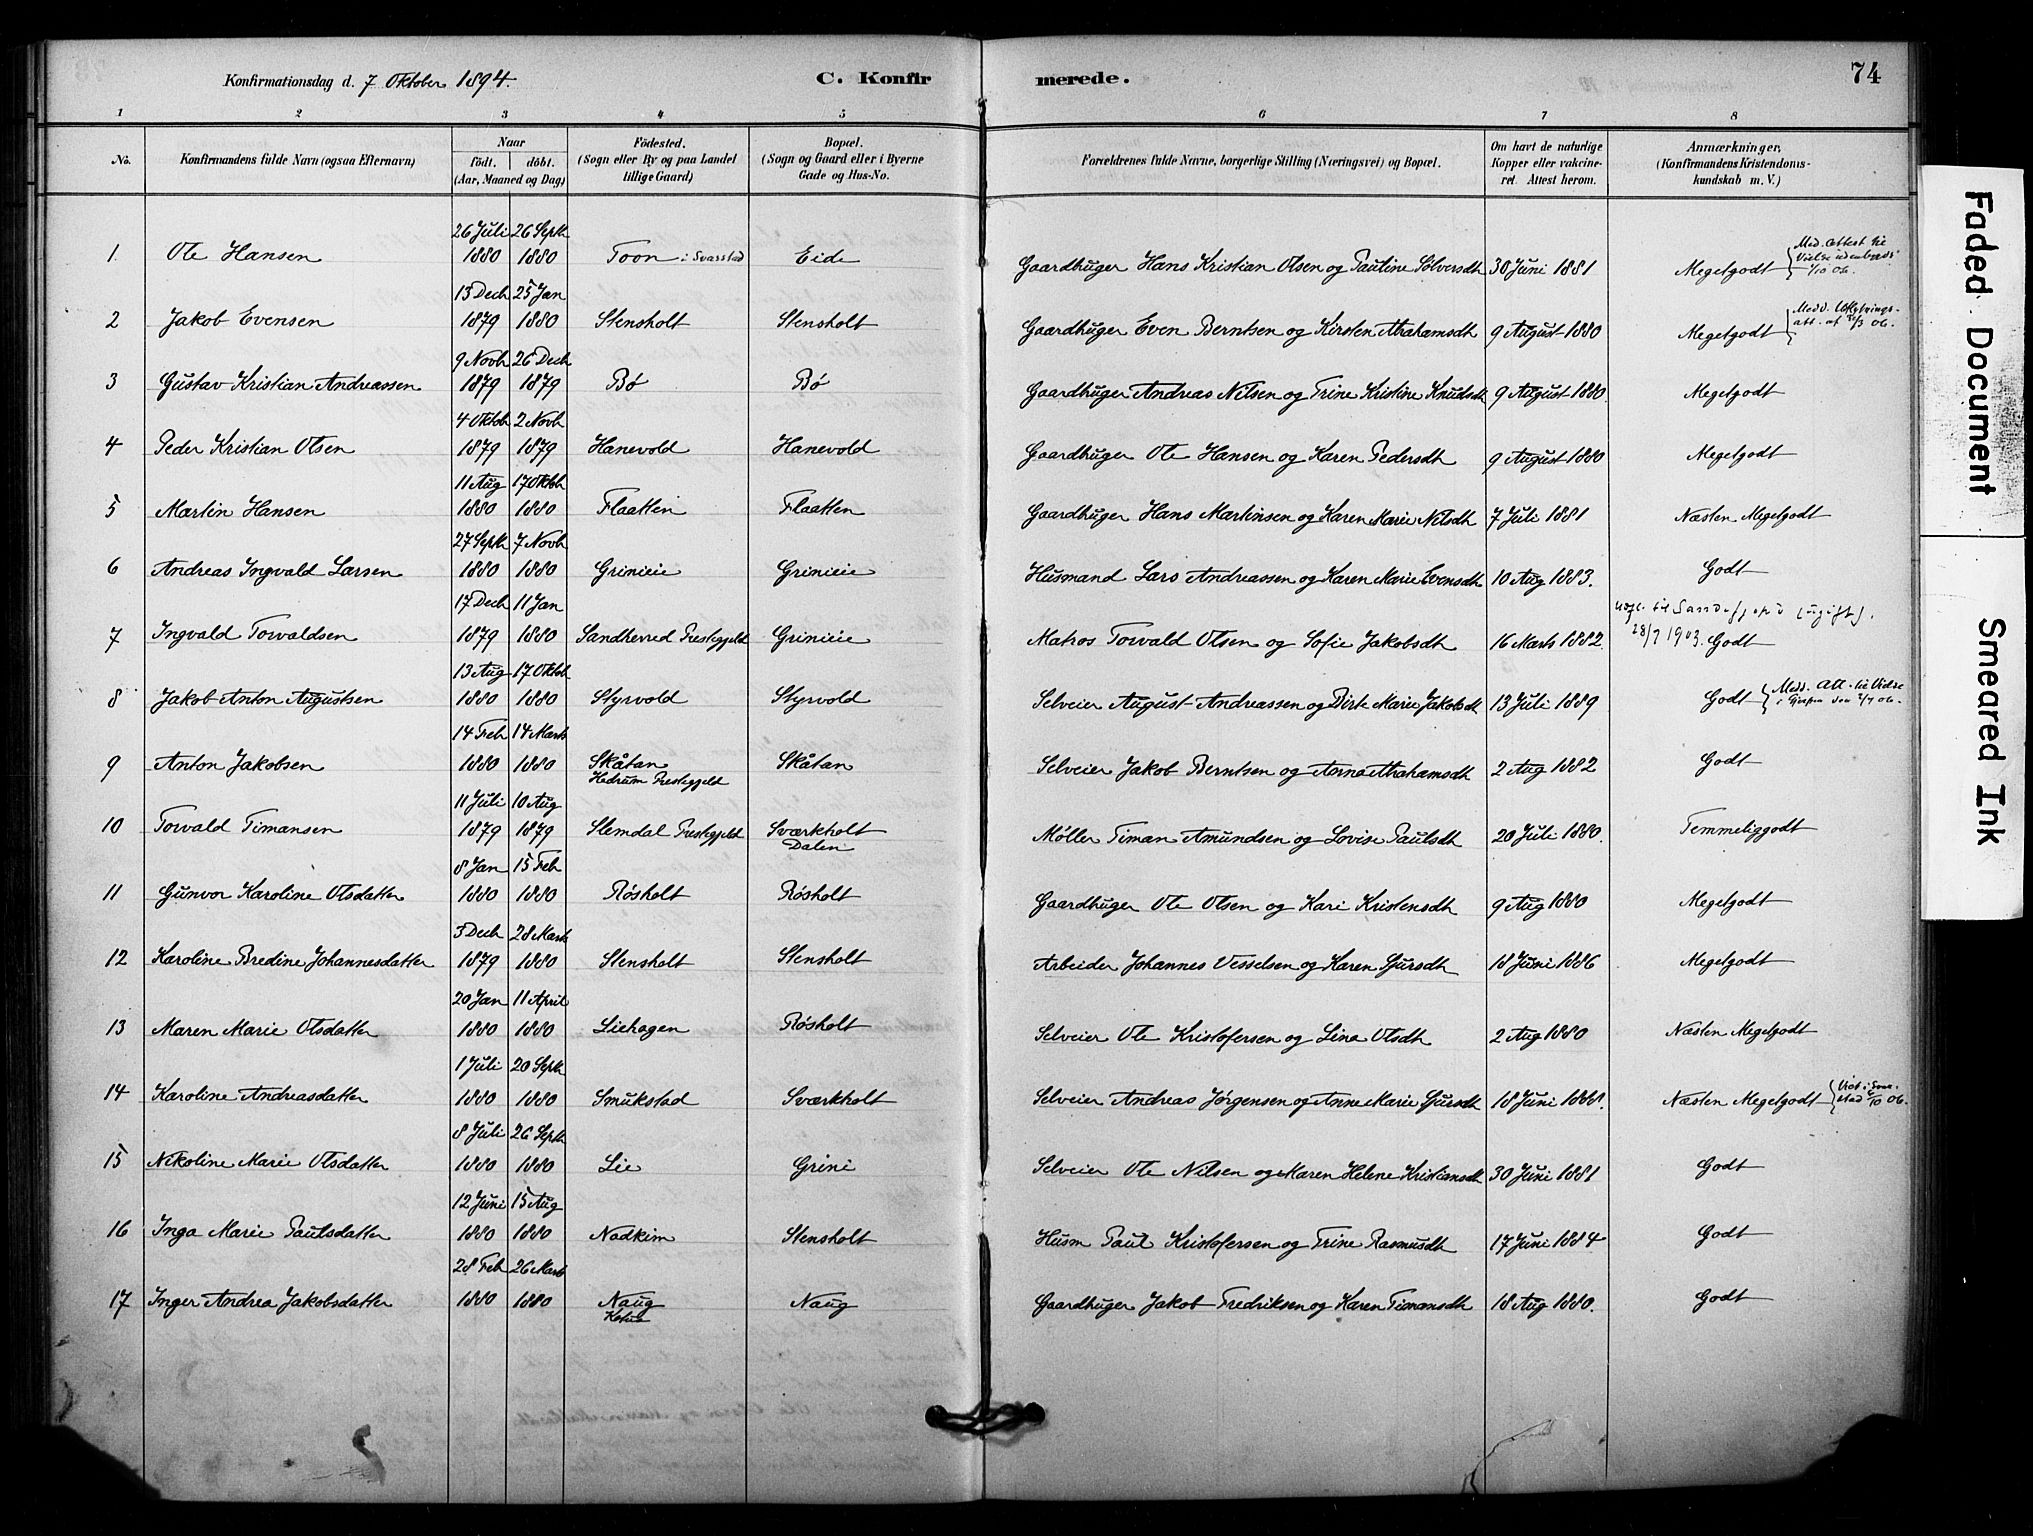 Konfirmationsdag d. 7 Oktober 1894. C. Konfirmerede. 74
1 2 3 4 5 6 7 8
No. Konfirmandens fulde Navn (ogsaa Efternavn) Naar födt. döbt. (Aar, Maaned og Dag) Födested. (Sogn eller By og paa Landet tillige Gaard) Bopæl. (Sogn og Gaard eller i Byerne Gade og Hus-No. Forældrenes fulde Navne, borgerlige Stilling (Næringsvei) og Bopæl. Om havt de naturlige Kopper eller vakcineret. Attest herom. Anmærkninger, (Konfirmandens Kristendomskundskab m. V.)
1. Ole Hansen 26 Juli 1880 26 Septb 1880 Toon i Svarstad Eide Gaardbruger Hans Kristian Olsen og Pauline Sølversdtr 30 Juni 1881 Megetgodt Med. Attest til Vielse udenbygds 1/10 06.
2 Jakob Evensen 13 Decb 1879 25 Jan 1880 Stensholt Stensholt Gaardbruger Even Berntsen og Kirsten Abrahamsdtr 9 August 1880 Megetgodt Medd. Udflytningsatt. af /3 06.
3 Gustav Kristian Andreassen 9 Novb 1879 26 Decb 1879 Bø Bø Gaardbruger Andreas Nilsen og Trine Kristine Knudsdtr 9 August 1880. Megetgodt
4 Peder Kristian Olsen 4 Oktob 1879 2 Novb 1879 Hanevold Hanevold Gaardbruger Ole Hansen og Karen Pedersdtr 9 August 1880 Megetgodt
5 Martin Hansen 11 Aug 1880 17 Oktob 1880 Flaatten Flaatten Gaardbruger Hans Martinsen og Karen Marie Nilsdtr 7 Juli 1881 Næsten Megetgodt
6 Andreas Ingvald Larsen 27 Septb 1880 7 Novb 1880 Grinieie Grinieie Husmand Lars Andreassen og Karen Marie Evensdtr 10 Aug 1883. Godt
7 Ingvald Torvaldsen 17 Decb 1879 11 Jan 1880 Sandherred Prestegjeld Grinieie Matros Torvald Olsen og Sofie Jakobsdtr 16 Marts 1882. Udfl. til Sandefjord (ugift). 28/7 1903. Godt
8 Jakob Anton Augustsen 13 Aug 1880 17 Oktob 1880 Styrvold Styrvold Selveier August Andreassen og Birte Marie Jakobsdtr 13 Juli 1889 Godt Medd. Att. til Vielse i Gjerpen den 2/7 06.
9 Anton Jakobsen 14 Feb 1880 14 Marts 1880 Skåtan Hedrum Prestegjeld Skåtan Selveier Jakob Berntsen og Anna Abrahamsdtr 2 Aug 1882 Godt
10 Torvald Timansen 11 Juli 1879 10 Aug 1879 Slemdal Prestegjeld Sværkholt Dalen Møller Timan Amundsen og Lovise Paulsdtr 20 Juli 1880. Temmeliggodt
11 Gunvor Karoline Olsdatter 8 Jan 1880 15 Feb 1880 Røsholt Røsholt Gaardbruger Ole Olsen og Kari Kristensdtr 9 Aug 1880 Megetgodt
12 Karoline Bredine Johannesdatter 3 Decb 1879 28 Marts 1880 Stensholt Stensholt Arbeider Johannes Vesselsen og Karen Sjursdtr 18 Juni 1886 Megetgodt
13 Maren Marie Olsdatter 20 Jan 1880 11 April 1880 Liehagen Røsholt Selveier Ole Kristofersen og Lina Olsdtr 2 Aug 1880 Næsten Megetgodt
14 Karoline Andreasdatter 1 Juli 1880 20 Septb 1880 Smukstad Sværkholt Selveier Andreas Jørgensen og Anne Marie Sjursdtr 18 Juni Næsten Megetgodt Viet i Svarstad /10 06.
15 Nikoline Marie Olsdatter 8 Juli 1880 26 Septb 1880 Lie Grini Selveier Ole Nilsen og Maren Helene Kristiansdtr 30 Juni 1881 Godt
16 Inga Marie Paulsdatter 12 Juni 1880 15 Aug 1880 Nadkim Stensholt Husm Paul Kristofersen og Trine Rasmusdtr 17 Juni 1884 Godt
17 Inger Andrea Jakobsdatter 28 Feb 1880 26 Marts 1880 Naug Naug Gaardbruger Jakob Fredriksen og Karen Timansdtr 18 Aug 1880. Godt
Faded Document
Smeared Ink